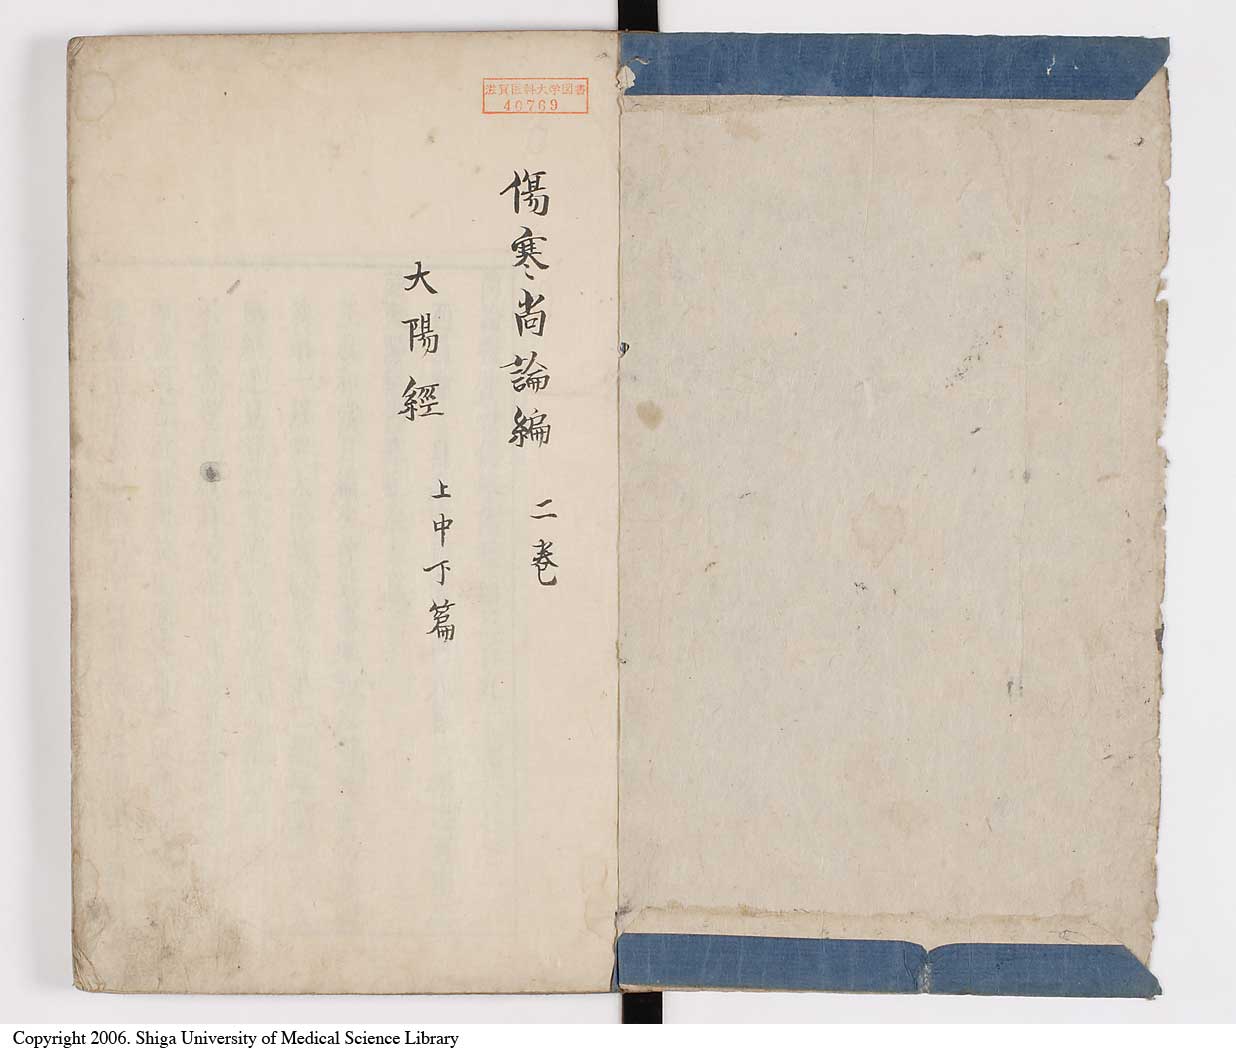 滋賀医科大学図書
40769
傷寒尚論編 二巻
大陽經 上中下篇
Copyright 2006. Shiga University of Medical Science Library